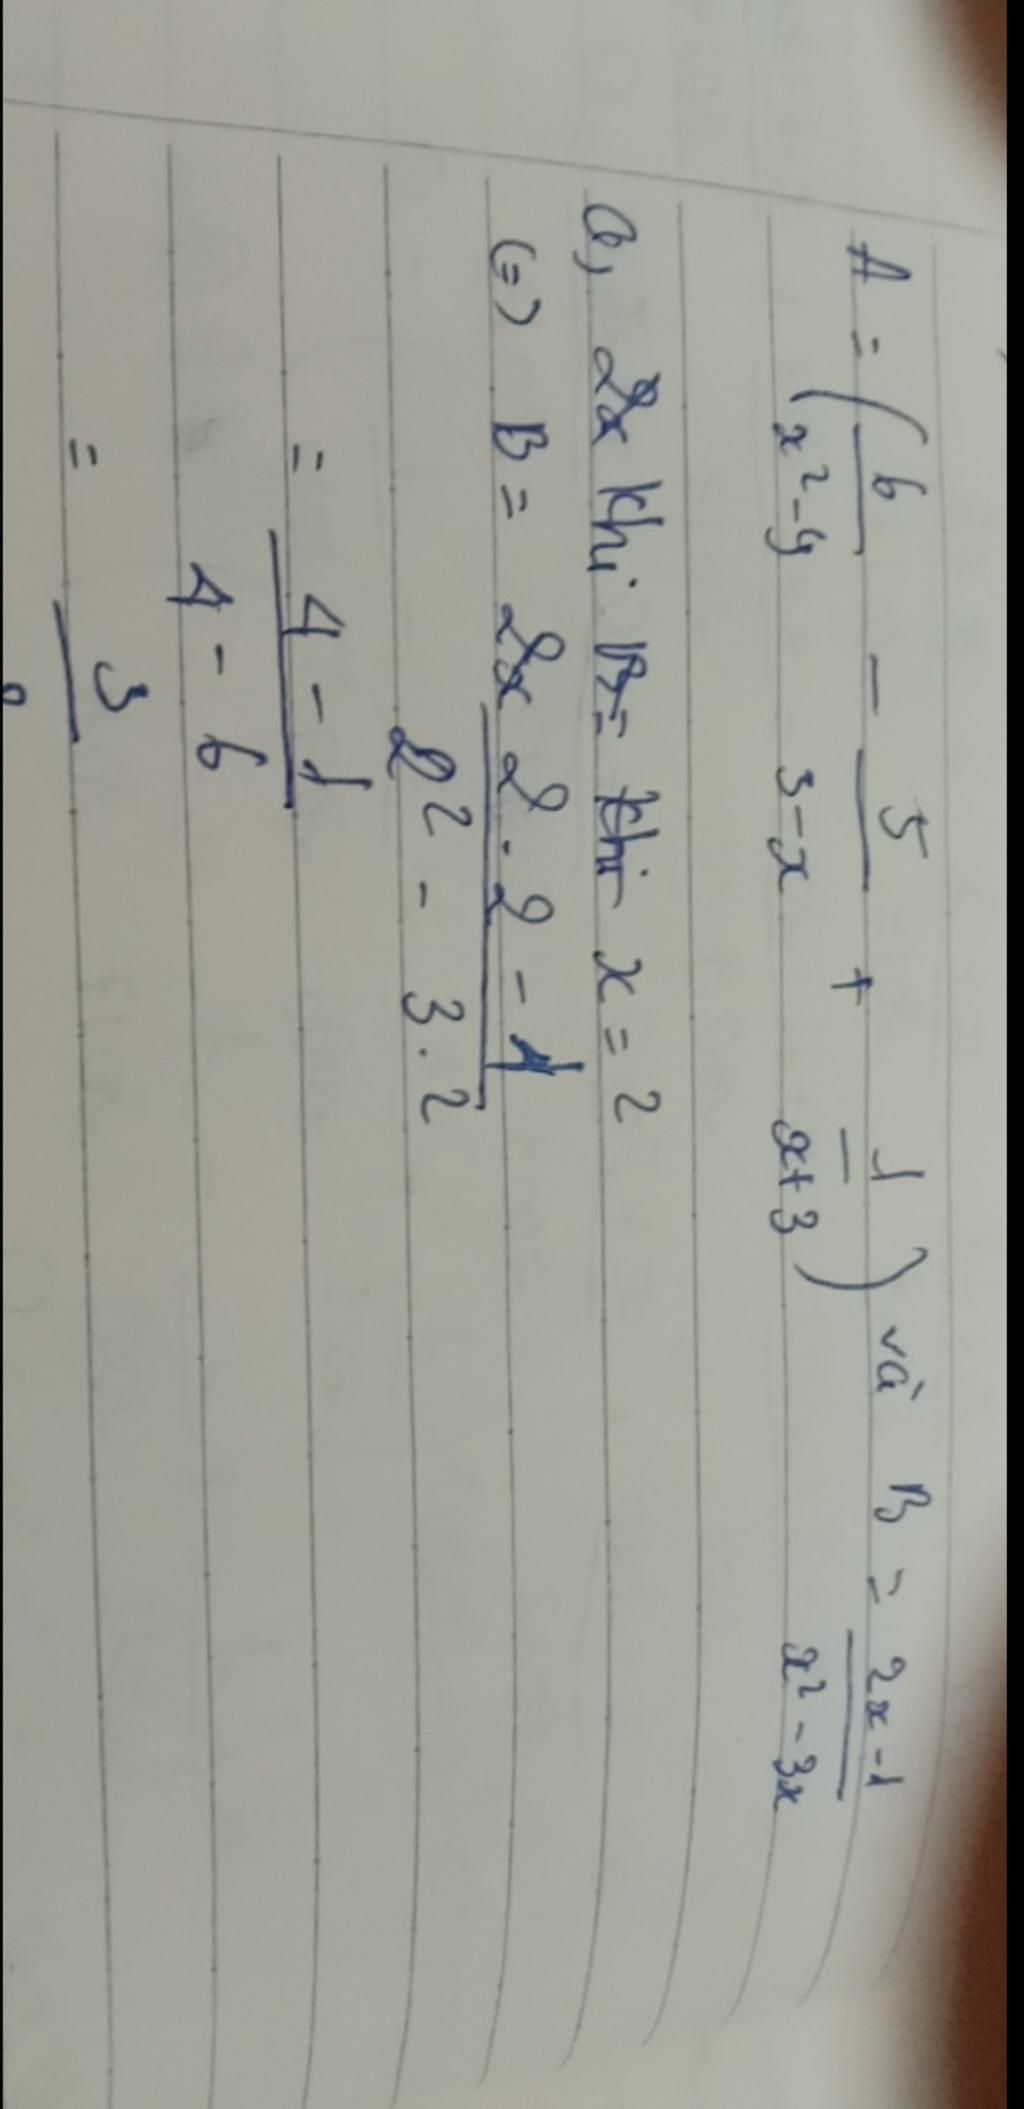 A = ( 6/(x² - 9) - 5/(3 - x) + 1/(x + 3) ) và B = (2x - 1)/(x² - 3x)
a, khi B = khi x = 2
(=) B = (2 . 2 - 1)/(2² - 3 . 2)
= (4 - 1)/(4 - 6)
= 3